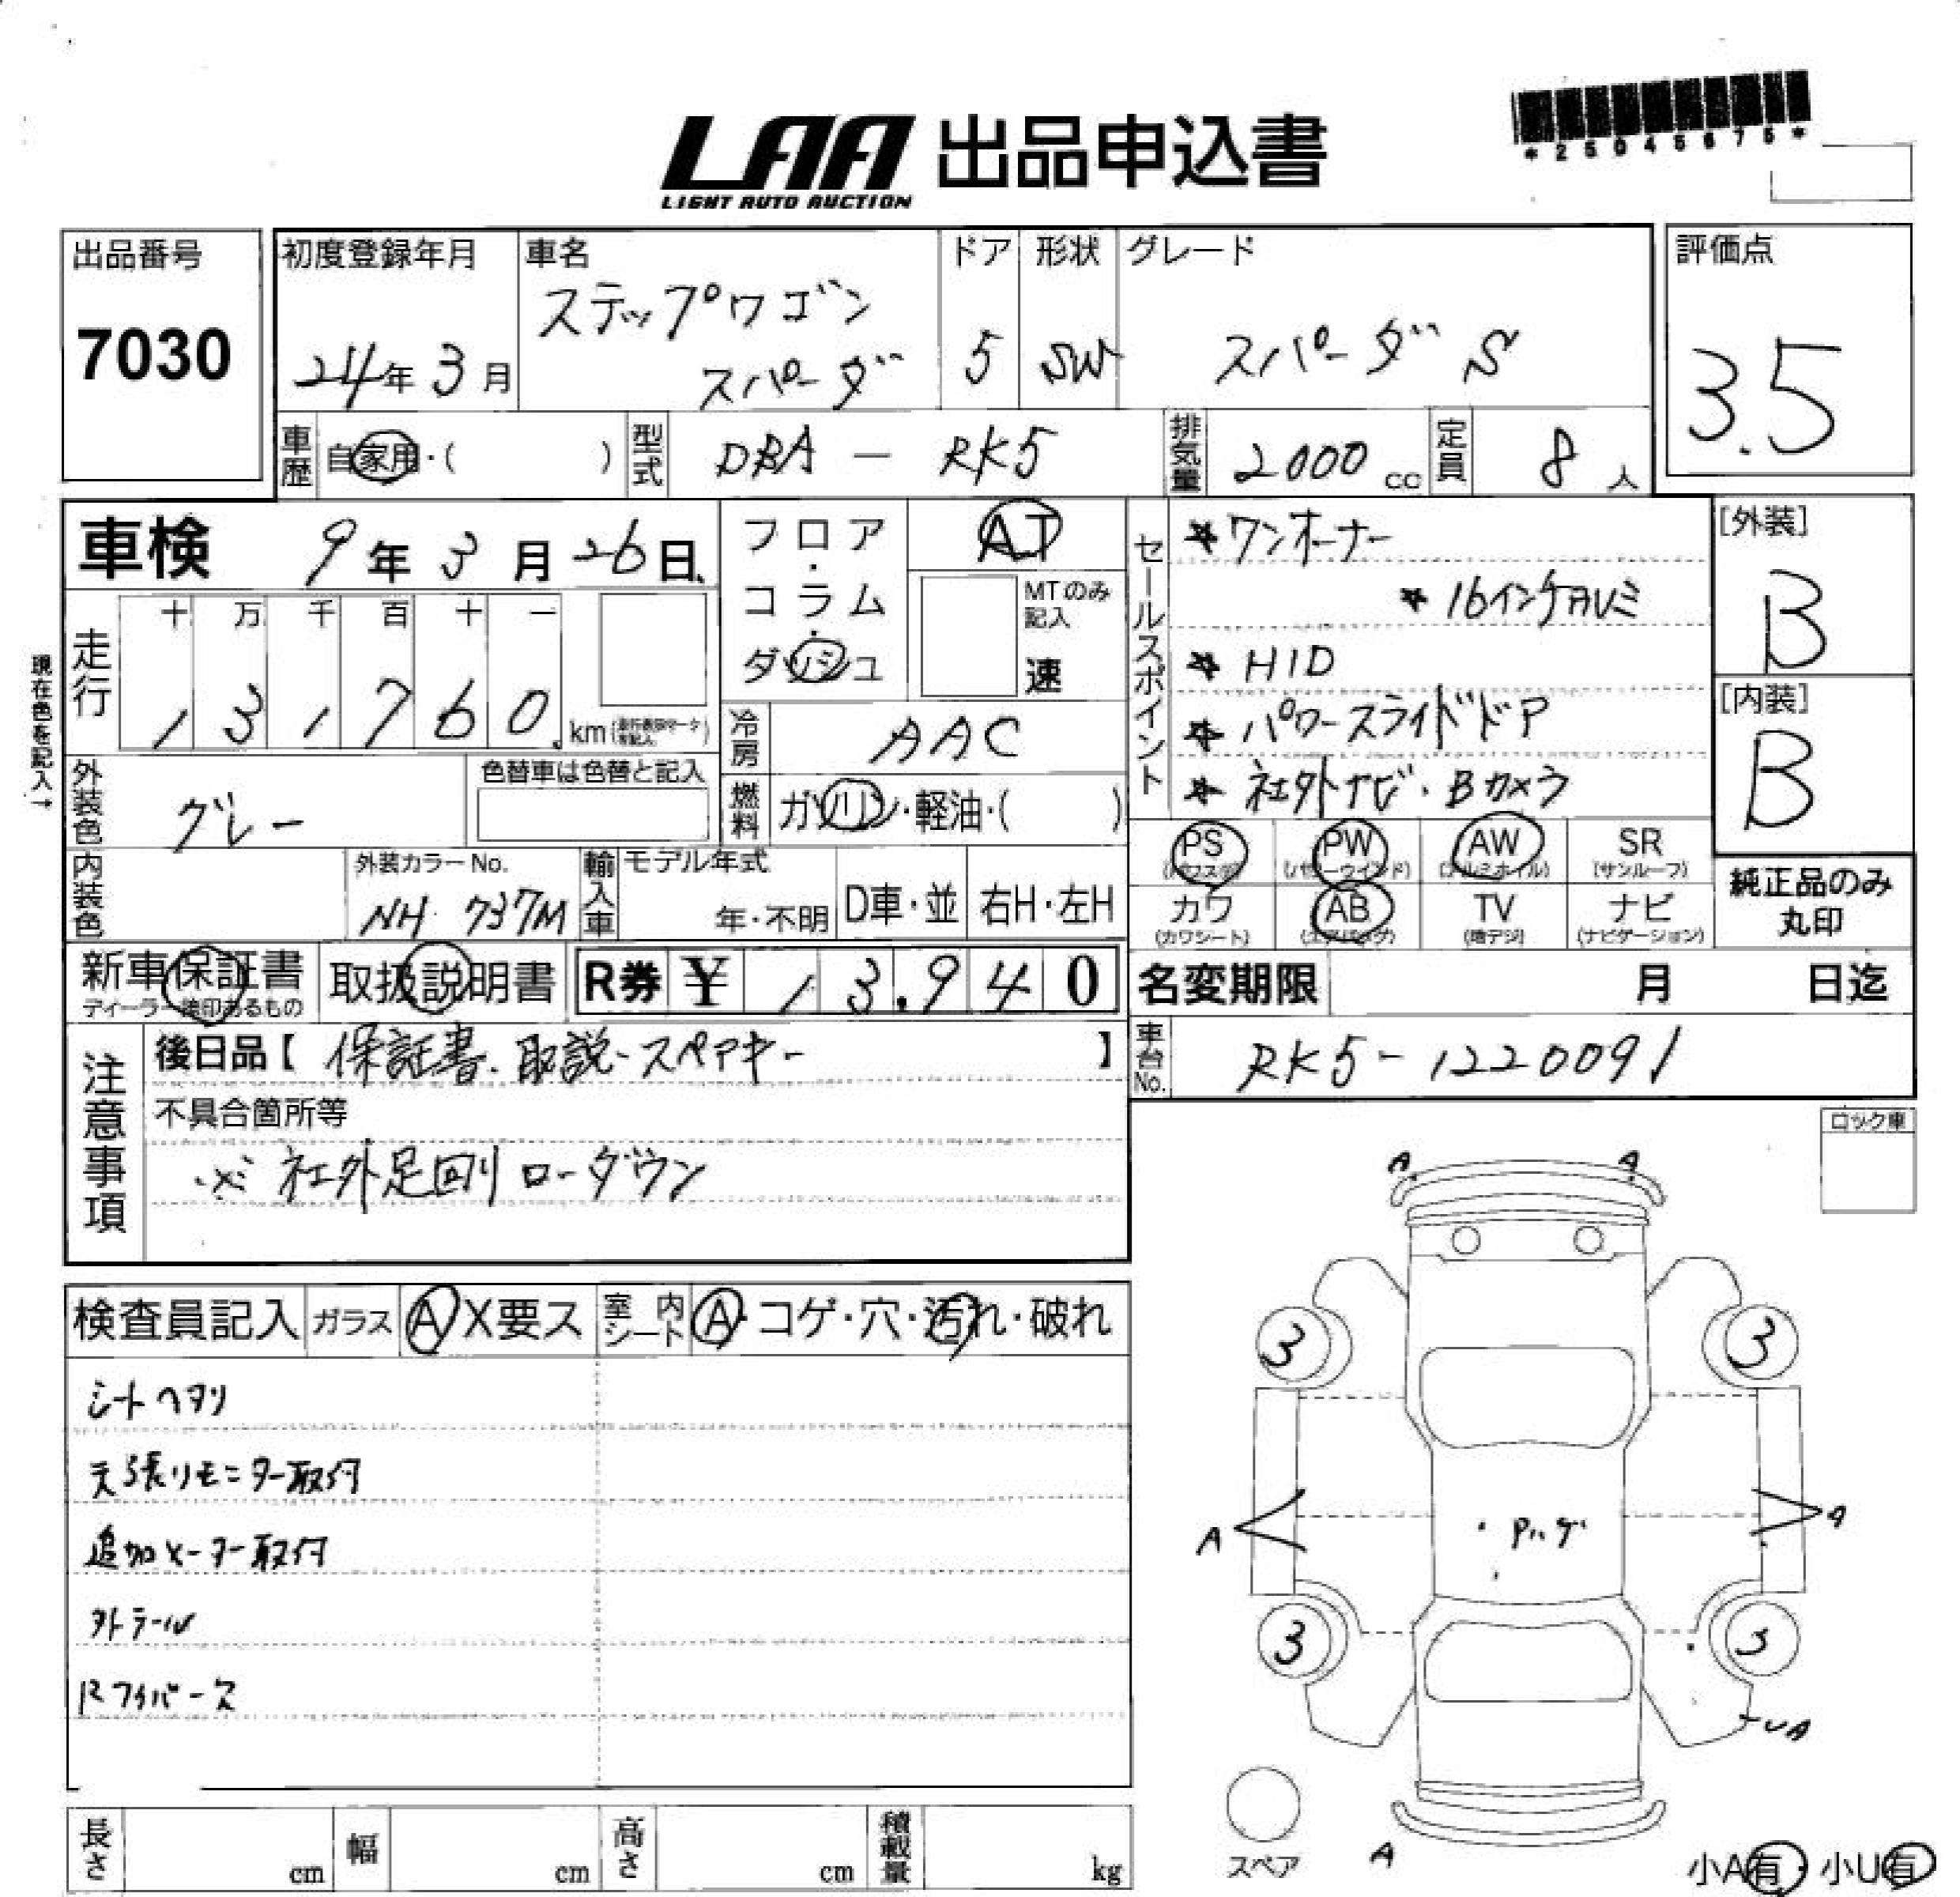 LAA 出品申込書
LIGHT AUTO AUCTION
*25045675*
出品番号
7030
初度登録年月
24年3月
車名
ステップワゴン
スパーダ
ドア
5
形状
SW
グレード
スパーダ S
評価点
3.5
車歴
自家用・( )
型式
DBA - RK5
排気量
2000 cc
定員
8 人
車検 9年3月26日
フロア・コラム・ダッシュ
AT
MTのみ記入
速
セールスポイント
★ワンオーナー
★16インチアルミ
★HID
★パワースライドドア
★社外ナビ・Bカメラ
[外装]
B
[内装]
B
現在色を記入→
走行
十 万 千 百 十 一
1 3 1 7 6 0 km
冷房
AAC
外装色
グレー
色替車は色替と記入
燃料
ガソリン・軽油・( )
内装色
外装カラーNo.
NH 737M
輸入車
モデル年式
年・不明
D車・並
右H・左H
PS
(パワステ)
PW
(パワーウインド)
AW
(アルミホイル)
SR
(サンルーフ)
カワ
(カワシート)
AB
(エアバッグ)
TV
(地デジ)
ナビ
(ナビゲーション)
純正品のみ
丸印
新車保証書
ディーラー捺印あるもの
取扱説明書
R券 ¥ 13,940
名変期限 月 日迄
車台No.
RK5-1220091
注意事項
後日品【 保証書・取説・スペアキー 】
不具合箇所等
※ 社外足回り ローダウン
ロック車
検査員記入
ガラス
A X要ス
室内シート
A・コゲ・穴・汚れ・破れ
シートヘタリ
天張りモニター取付
追加メーター取付
外テール
A
A
3
3
A
A
3
3
UA
スペア
A
小A有・小U有
長さ
cm
幅
cm
高さ
cm
積載量
kg